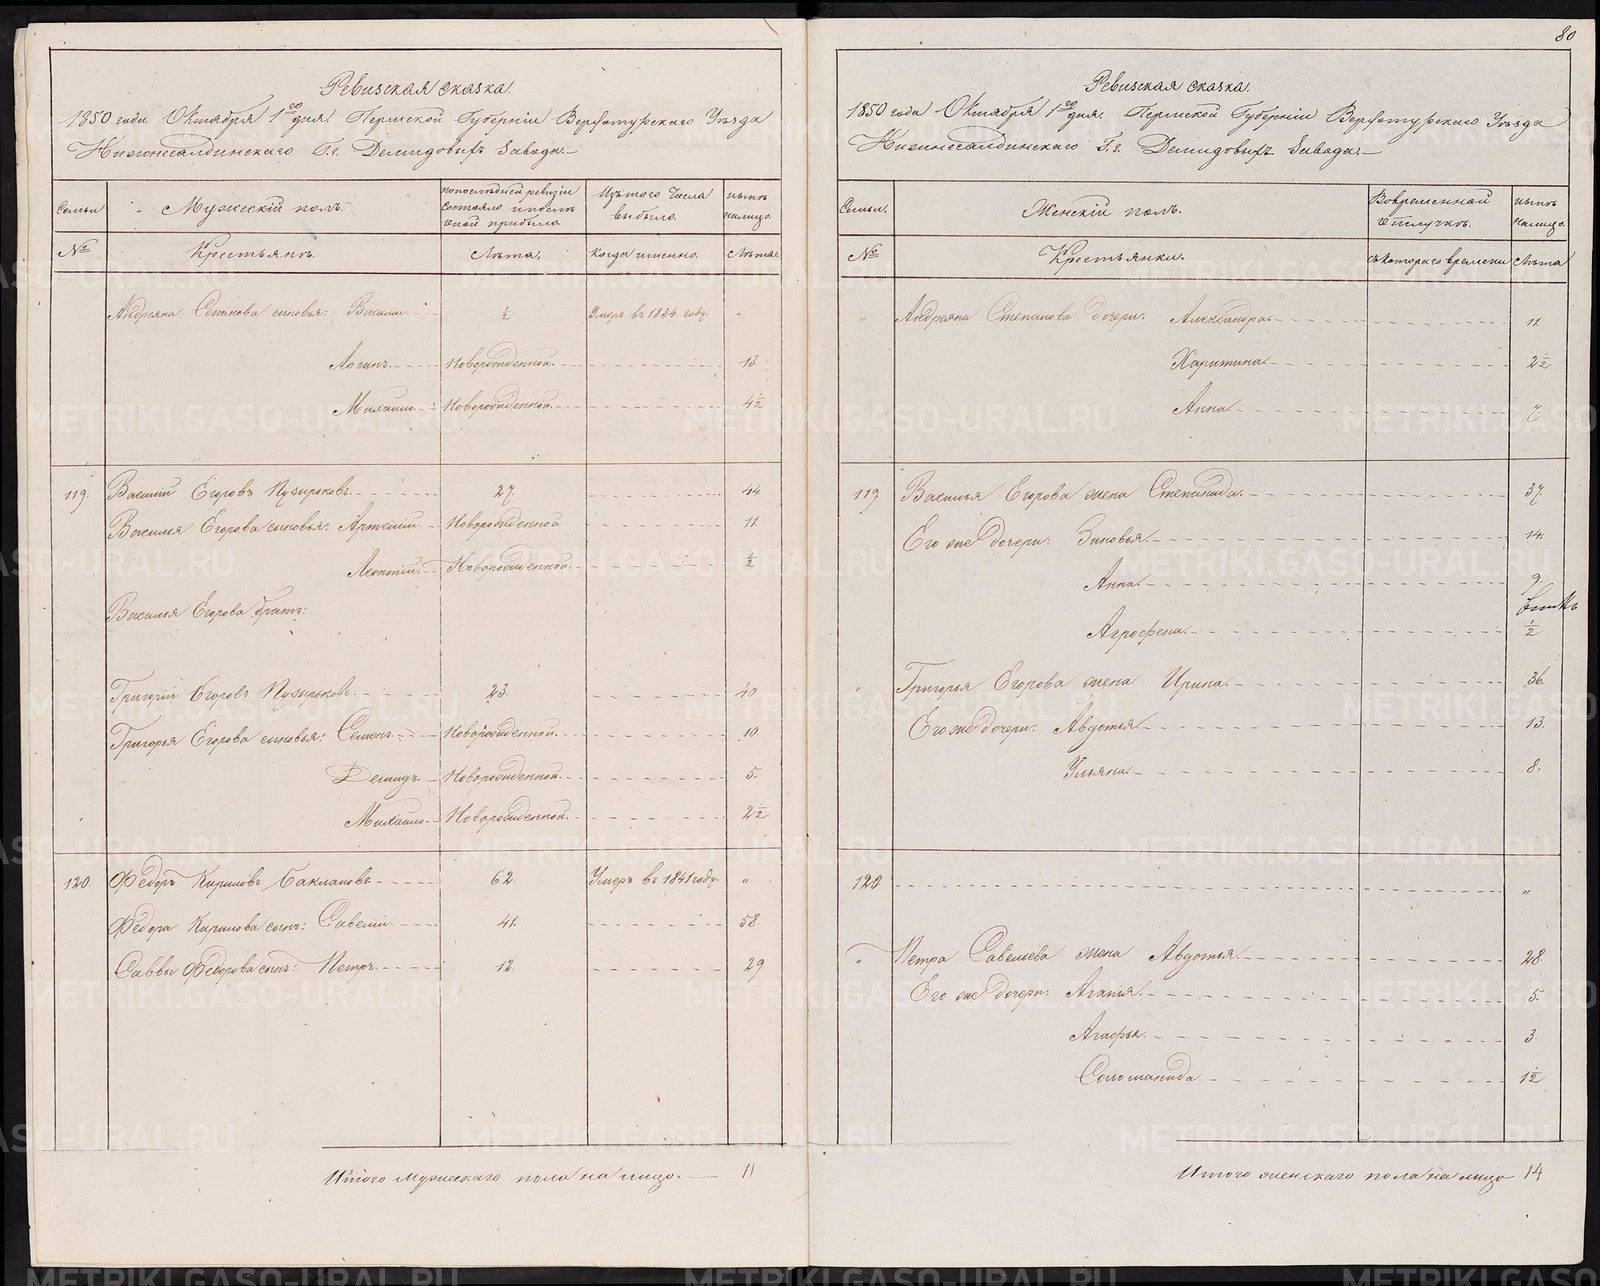 80
Ревизская сказка.
1850 года Октября 1го дня. Пермской Губерніи Верхотурскаго Уѣзда
Нижнесалдинскаго Г.г. Демидовыхъ Завода.
Семьи
Мужескій полъ.
По последней ревизіи состояло и после оной прибыло.
Изъ того числа выбыло.
Нынѣ налицо.
№
Крестьянъ.
Лѣта.
Когда именно.
Лѣта.
Андреяна Степнова сыновья: Василій 1/2 Умеръ въ 1834 году. "
Логинъ Новорожденной 13
Михаило Новорожденной 4 1/2
119 Василій Егоровъ Пузырьковъ 27 44
Василья Егорова сыновья: Артемій Новорожденной 11
Леонтій Новорожденной 1/2
Василья Егорова братъ:
Григорій Егоровъ Пузырьковъ 23. 40
Григорья Егорова сыновья: Семенъ Новорожденной 10.
Демидъ Новорожденной 5.
Михаило Новорожденной 2 1/2
120 Федоръ Кириловъ Баклановъ 62. Умеръ въ 1841 году. "
Федора Кирилова сынъ: Савелій 41. 58
Саввы Федорова сынъ: Петръ 12 29
Итого мужескаго пола на лицо. 11
Ревизская сказка.
1850 года Октября 1го дня. Пермской Губерніи Верхотурскаго Уѣзда
Нижнесалдинскаго Г.г. Демидовыхъ Завода.
Семьи.
Женскій полъ.
Во временной отлучкѣ.
Нынѣ налицо.
№
Крестьянки.
Съ котораго времени
Лѣта
" Андреяна Степанова дочери: Александра 11
Харитина 2 1/2
Анна
119 Василья Егорова жена Степанида 37.
Его же дочери: Зиновья 14.
Анна 9.
Агрофена 1/2
" Григорья Егорова жена Ирина 36.
Его же дочери: Авдотья 13.
Ульяна 8.
120. "
" Петра Савельева жена Авдотья 28.
Его же дочери: Агапья 5.
Агафья 3
Соломанида 1 1/2
Итого женскаго пола на лицо 14
METRIKI.GASO-URAL.RU